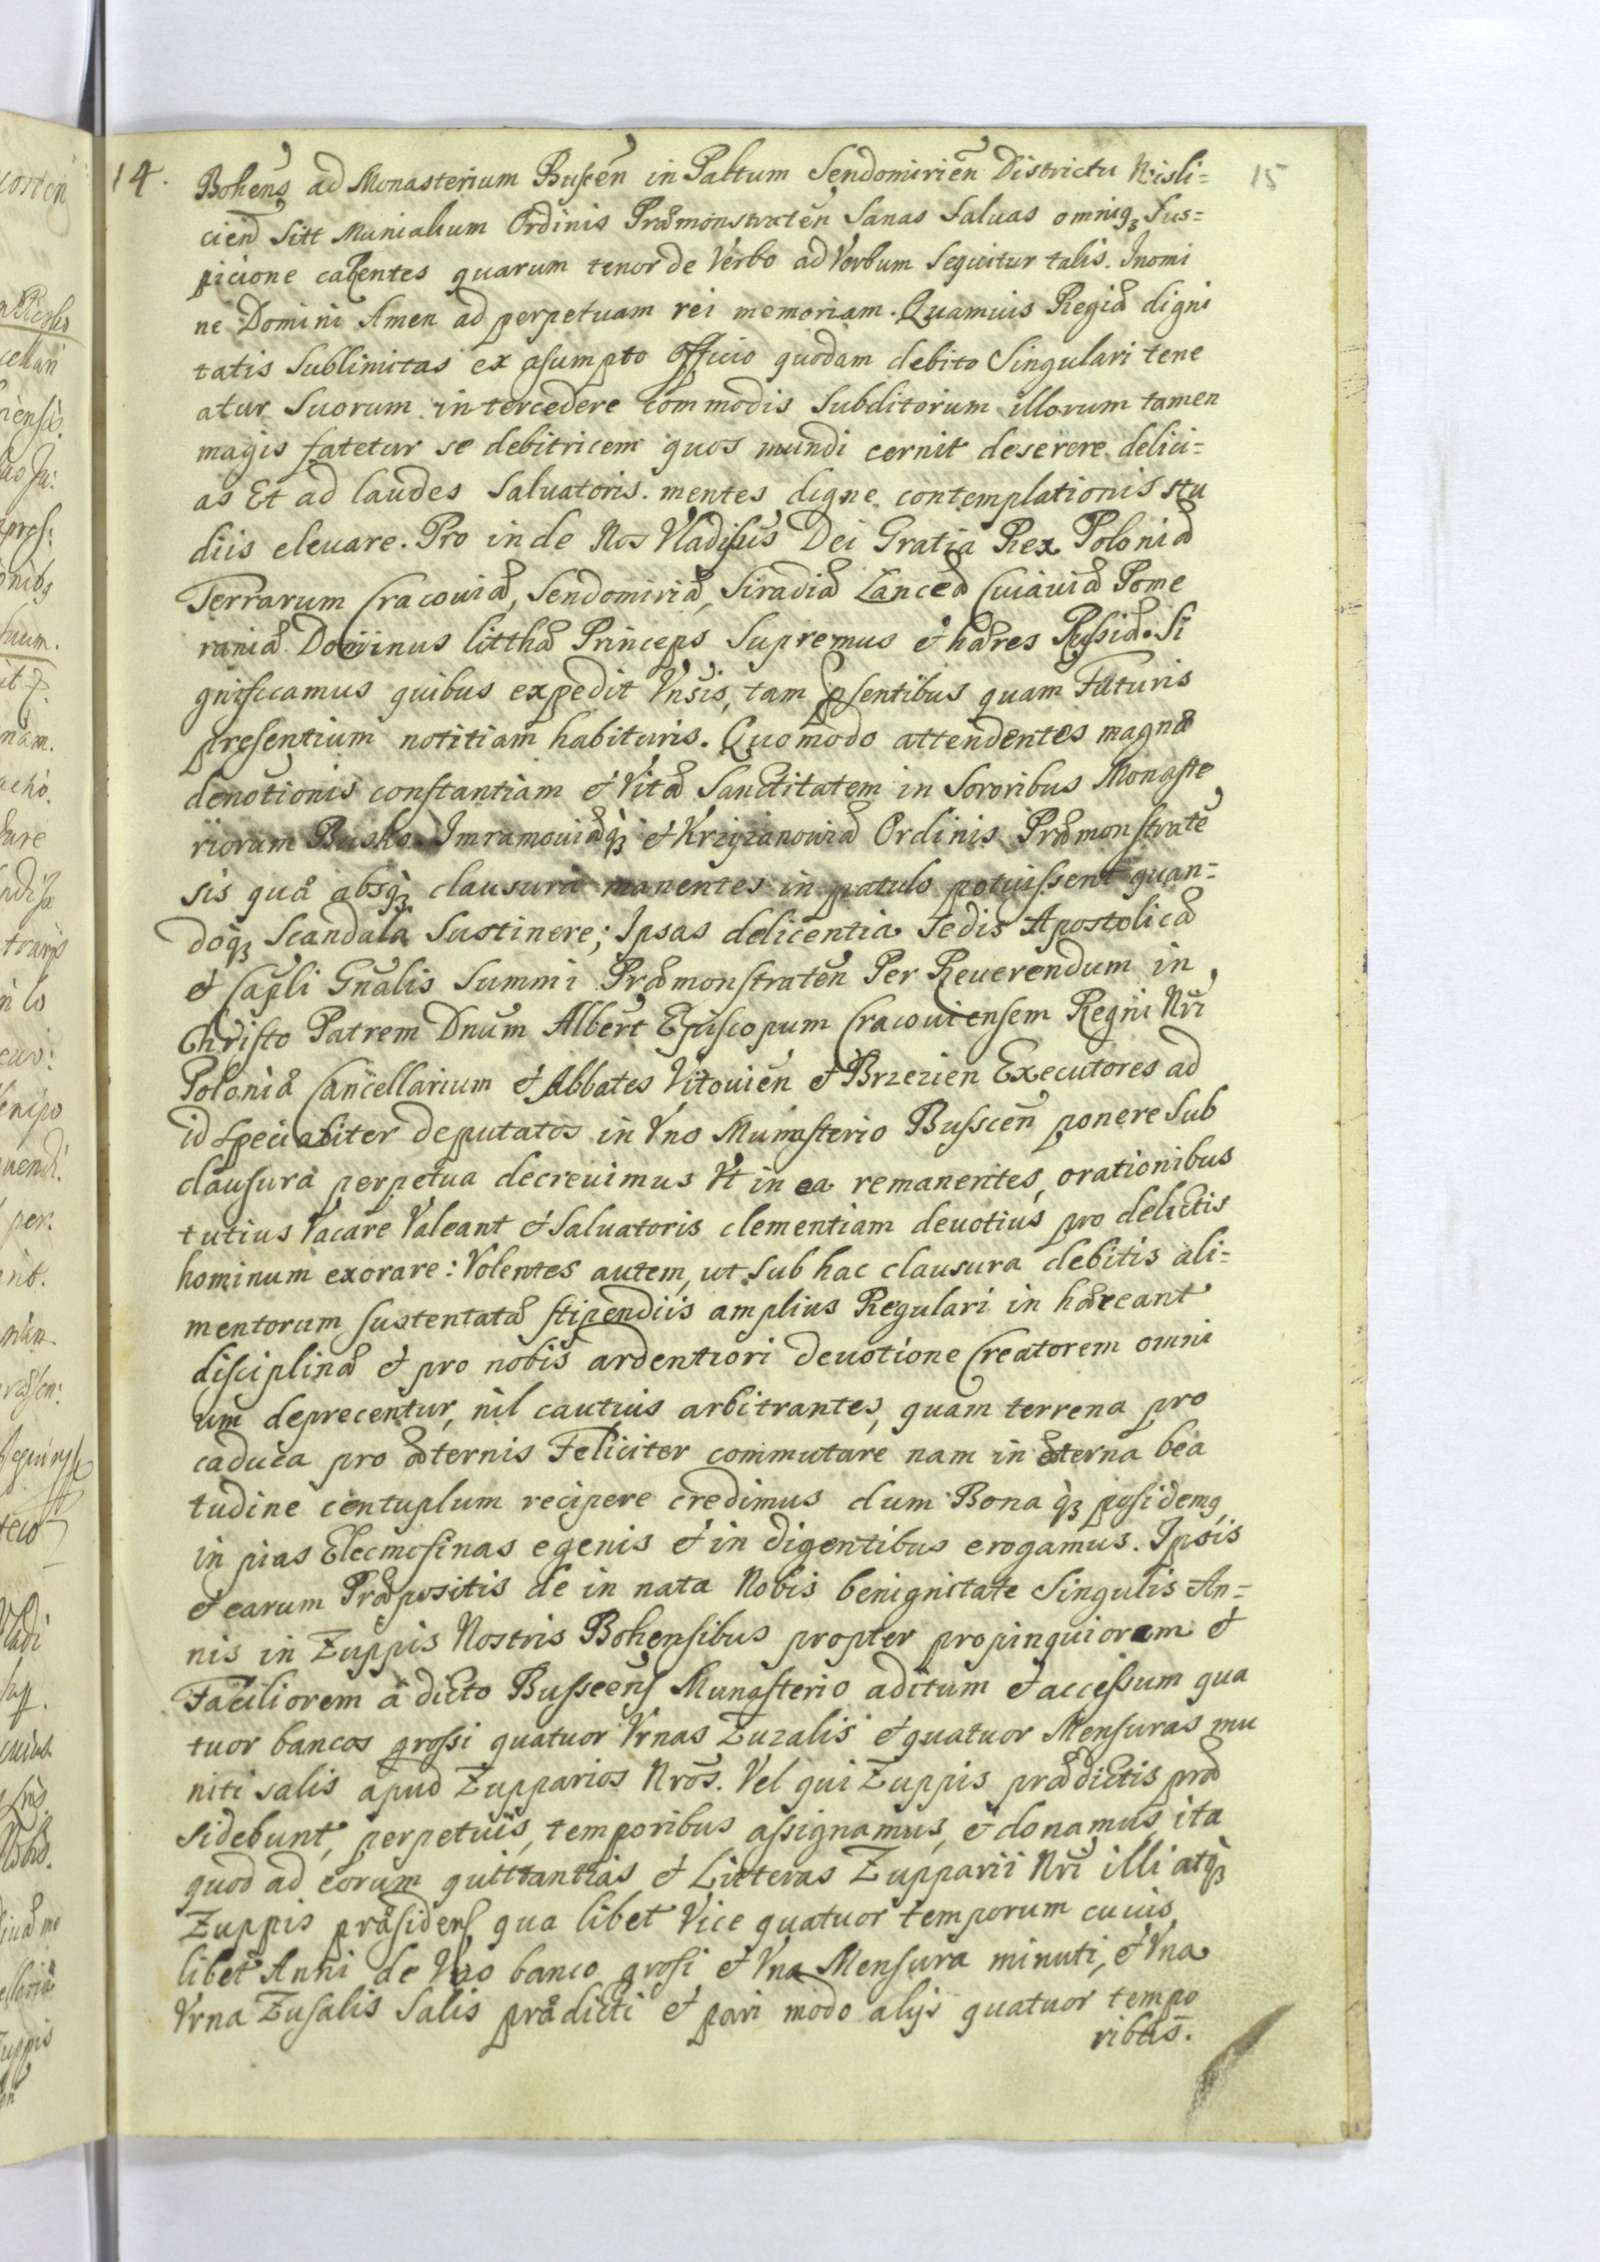 14. 15
Bohens ad Monasterium Busen in Paltum Sendomirien Districtu Visli=
cien Sitt Munialium Ordinis Præmonstraten Sanas Saluas omniq3 Sus=
picione carentes quarum tenor de Verbo ad Verbum Sequitur talis. Inomi
ne Domini Amen ad perpetuam rei memoriam. Quamuis Regiæ digni
tatis Sublimitas ex asumpto Officio quodam debito Singulari tene
atur Suorum intercedere commodis Subditorum illorum tamen
magis fatetur se debitricem quos mundi cernit deserere delici=
as Et ad laudes Saluatoris. mentes digne contemplationis stu
diis eleuare. Pro inde Nos Vladisus Dei Gratia Rex Poloniæ
Terrarum Cracouiæ, Sendomiriæ, Siradiæ Lanceæ Cuiauiæ Pome
raniæ Dominus litthæ Princeps Supremus & hæres Russiæ. Si
gnificamus quibus expedit Vnsis, tam psentibus quam Futuris
presentium notitiam habituris. Quomodo attendentes magnæ
deuotionis constantiam & Vitæ Sanctitatem in Sororibus Monaste
riorum Busko Imramouiæq3 & Krzyzanouiæ Ordinis Præmonstraté
sis quæ absq3 clausura manentes in patulo potuissent quan=
doq3 Scandala Sustinere; Ipsas delicentia Sedis Apostolicæ
& Capli Gnalis Summi Præmonstraten Per Reuerendum in
Christo Patrem Dnum Albert Episcopum Cracouiensem Regni Nri
Poloniæ Cancellarium & Abbates Vitouien & Brzezien Executores ad
id specialiter deputatos in Vno Munasterio Busscen ponere Sub
clausura perpetua decreuimus Vt in ea remanentes, orationibus
tutius Vacare Valeant & Saluatoris clementiam deuotius pro delictis
hominum exorare: Volentes autem, ut Sub hac clausura debitis ali=
mentorum sustentatæ stipendiis amplius Regulari in hæreant
disciplinæ & pro nobis ardentiori deuotione Creatorem omni
um deprecentur, nil cautius arbitrantes, quam terrena pro
caduca pro æternis Feliciter commutare nam in æterna bea
tudine centuplum recipere credimus dum Bona q3 posidemq
in pias Elecmosinas egenis & in digentibus erogamus. Ipsis
& earum Præpositis de in nata Nobis benignitate Singulis An=
nis in Zuppis Nostris Bohensibus propter propinquiorem &
Faciliorem â dicto Busseens Munasterio aditum & accessum qua
tuor bancos grossi quatuor Vrnas Zuzalis & quatuor Mensuras mu
niti salis apud Zupparios Nros. Vel qui Zuppis prædictis præ
sidebunt, perpetuis, temporibus assignamus, & donamus, ita
quod ad eorum quittantias & Litteras Zupparii Nri illi atq3
Zuppis præsidens qua libet Vice quatuor temporum cuius
libet Anni de Vno banco grosi & Vna Mensura minuti, & Vna
Vrna Zusalis Salis prædicti & pari modo alijs quatuor tempo
ribus.